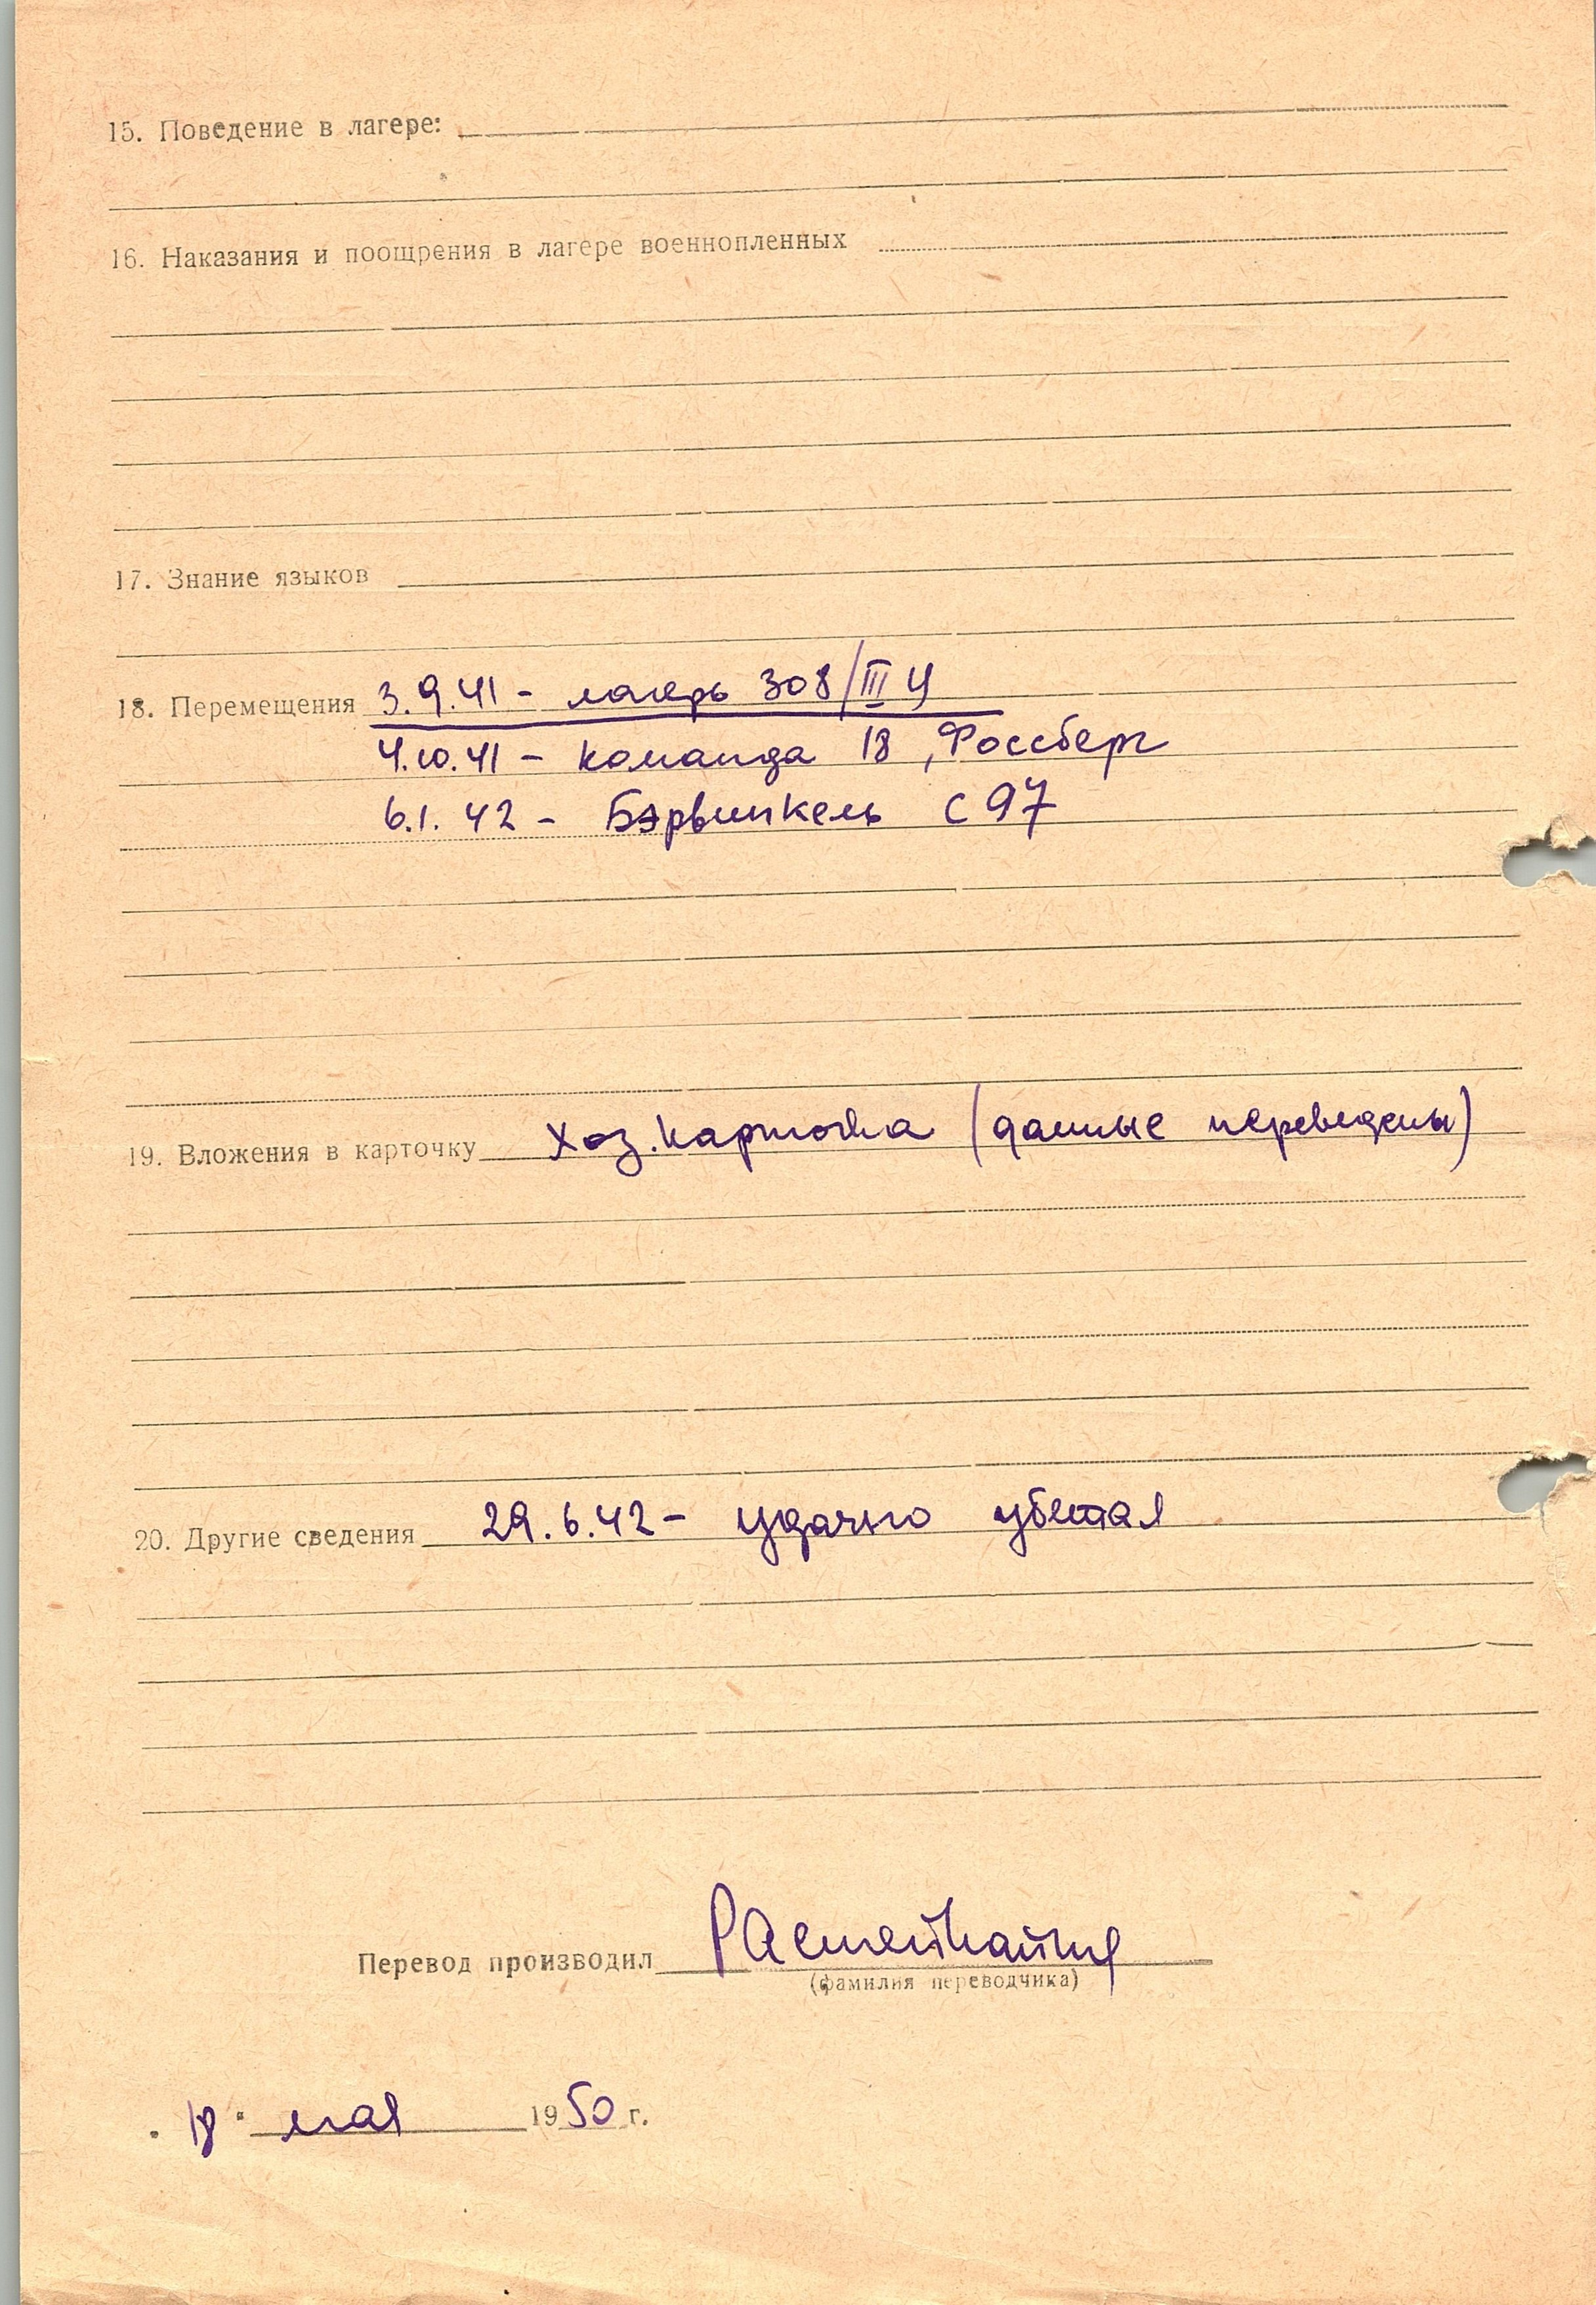 15. Поведение в лагере:
16. Наказания и поощрения в лагере военнопленных
17. Знание языков
18. Перемещения 3.9.41 - лагерь 308/III Ц
4.10.41 - команда 18, Россберг
6.1.42 - Бэрвинкель С 97
19. Вложения в карточку Хоз. карточка (данные переведены)
20. Другие сведения 29.6.42 - удачно убежал
Перевод производил
(фамилия переводчика)
"18" мая 1950 г.